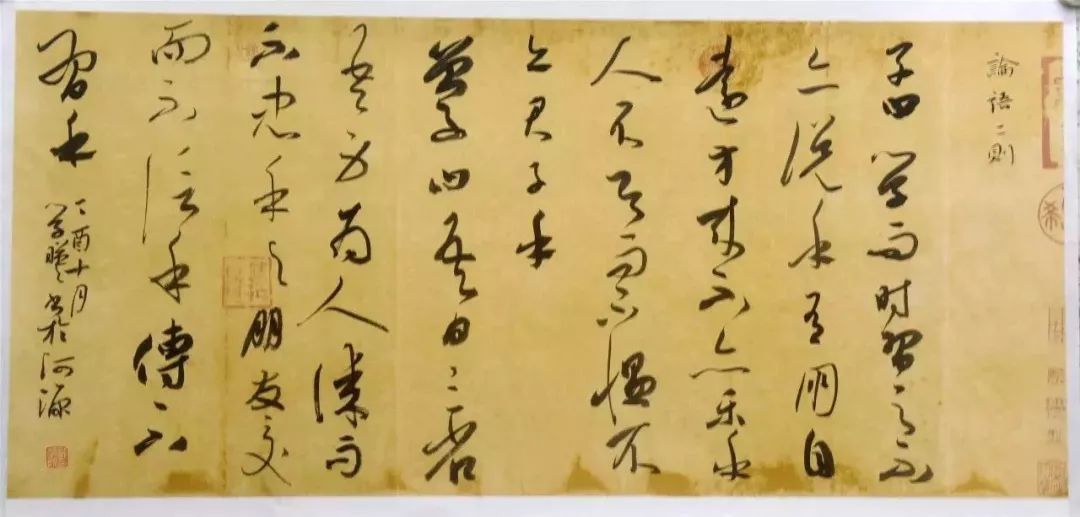 論語二則
子曰學而时習之不
亦说乎有朋自
遠方来不亦乐乎
人不知而不愠不
亦君子乎
曾子曰吾日三省
吾身为人谋而
不忠乎与朋友交
而不信乎傳不
習乎
丁酉十月
书於河源